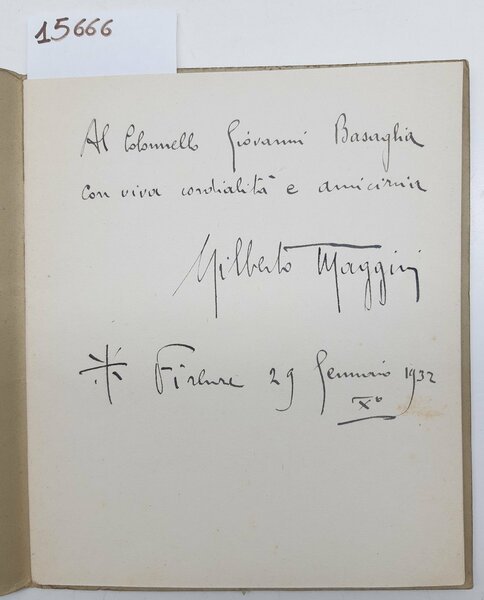 15666
Al Colonnello Giovanni Basaglia
con viva cordialità e amicizia
Gilberto Maggini
Firenze 29 Gennaio 1932
Xº